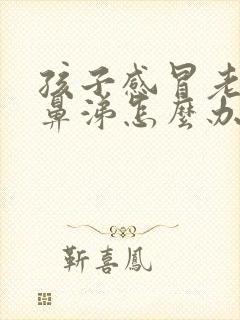 孩子感冒老
鼻涕怎麼办
靳喜鳳